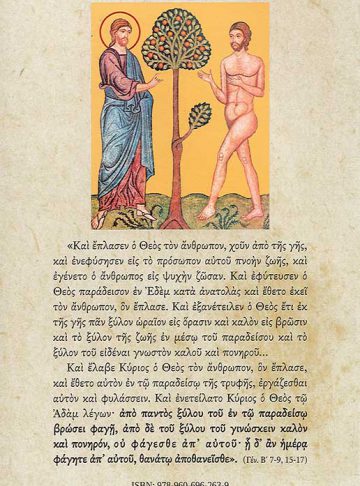 «Καὶ ἔπλασεν ὁ Θεὸς τὸν ἄνθρωπον, χοῦν ἀπὸ τῆς γῆς,
καὶ ἐνεφύσησεν εἰς τὸ πρόσωπον αὐτοῦ πνοὴν ζωῆς, καὶ
ἐγένετο ὁ ἄνθρωπος εἰς ψυχὴν ζῶσαν. Καὶ ἐφύτευσεν ὁ
Θεὸς παράδεισον ἐν Ἐδὲμ κατὰ ἀνατολὰς καὶ ἔθετο ἐκεῖ
τὸν ἄνθρωπον, ὃν ἔπλασε. Καὶ ἐξανέτειλεν ὁ Θεὸς ἔτι ἐκ
τῆς γῆς πᾶν ξύλον ὡραῖον εἰς ὅρασιν καὶ καλὸν εἰς βρῶσιν
καὶ τὸ ξύλον τῆς ζωῆς ἐν μέσῳ τοῦ παραδείσου καὶ τὸ
ξύλον τοῦ εἰδέναι γνωστὸν καλοῦ καὶ πονηροῦ...
Καὶ ἔλαβε Κύριος ὁ Θεὸς τὸν ἄνθρωπον, ὃν ἔπλασε,
καὶ ἔθετο αὐτὸν ἐν τῷ παραδείσῳ τῆς τρυφῆς, ἐργάζεσθαι
αὐτὸν καὶ φυλάσσειν. Καὶ ἐνετείλατο Κύριος ὁ Θεὸς τῷ
Ἀδὰμ λέγων· ἀπὸ παντὸς ξύλου τοῦ ἐν τῷ παραδείσῳ
βρώσει φαγῇ, ἀπὸ δὲ τοῦ ξύλου τοῦ γινώσκειν καλὸν
καὶ πονηρόν, οὐ φάγεσθε ἀπ' αὐτοῦ· ᾗ δ' ἂν ἡμέρᾳ
φάγητε ἀπ' αὐτοῦ, θανάτῳ ἀποθανεῖσθε». (Γέν. Β´ 7-9, 15-17)
ISBN: 978-960-696-263-9